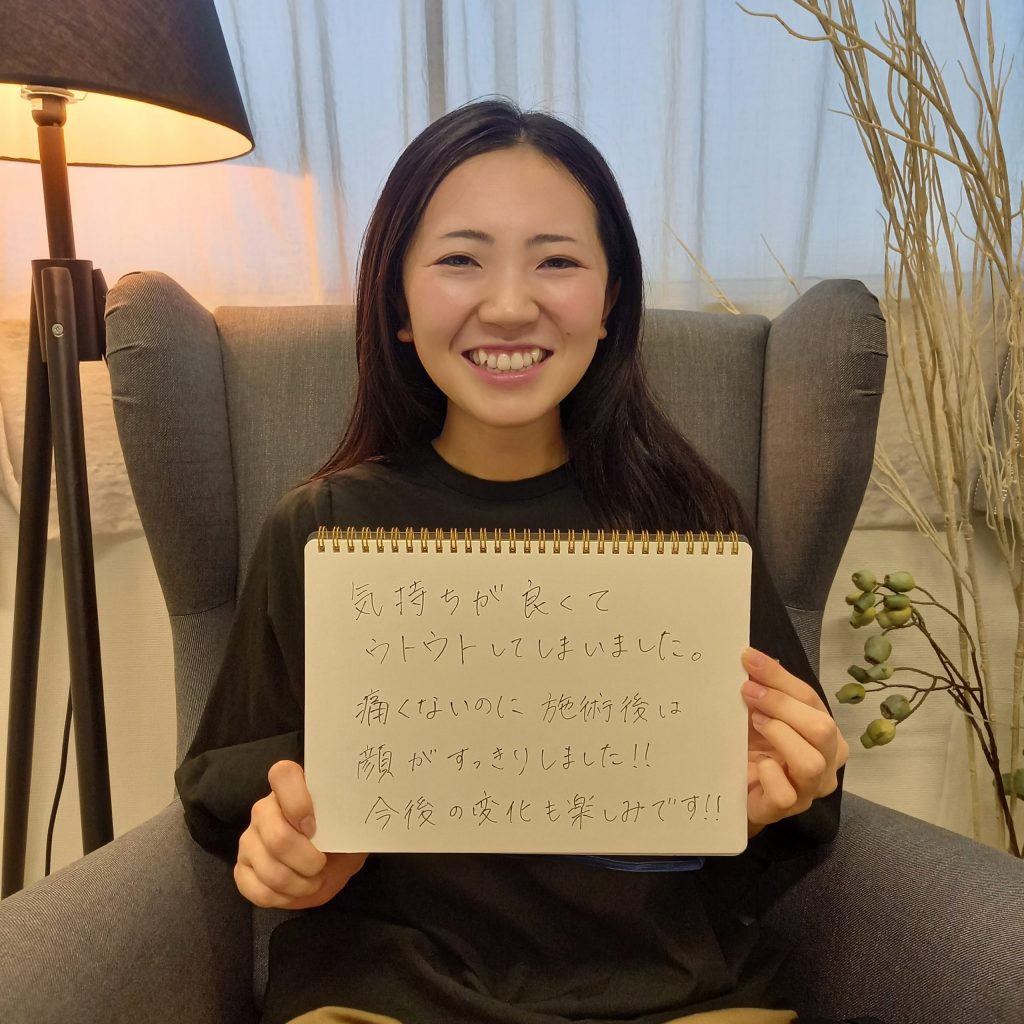 気持ちが良くて
ウトウトしてしまいました。
痛くないのに 施術後は
顔がすっきりしました!!
今後の変化も楽しみです!!